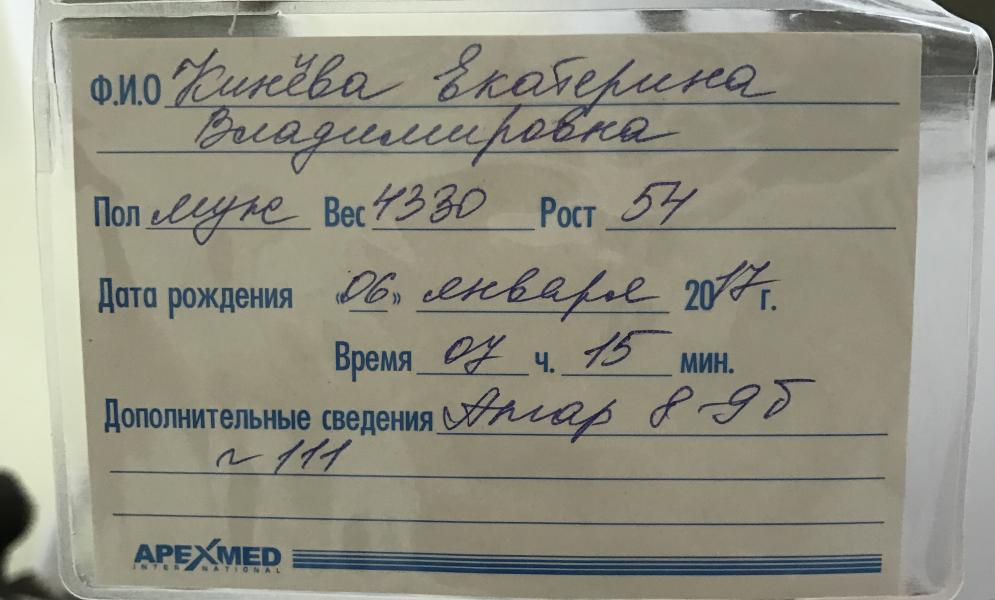 Ф.И.О Кинёва Екатерина
Владимировна
Пол муж Вес 4330 Рост 54
Дата рождения «06» января 2017г.
Время 07 ч. 15 мин.
Дополнительные сведения Апгар 8-9б
~ 111
APEXMED
INTERNATIONAL